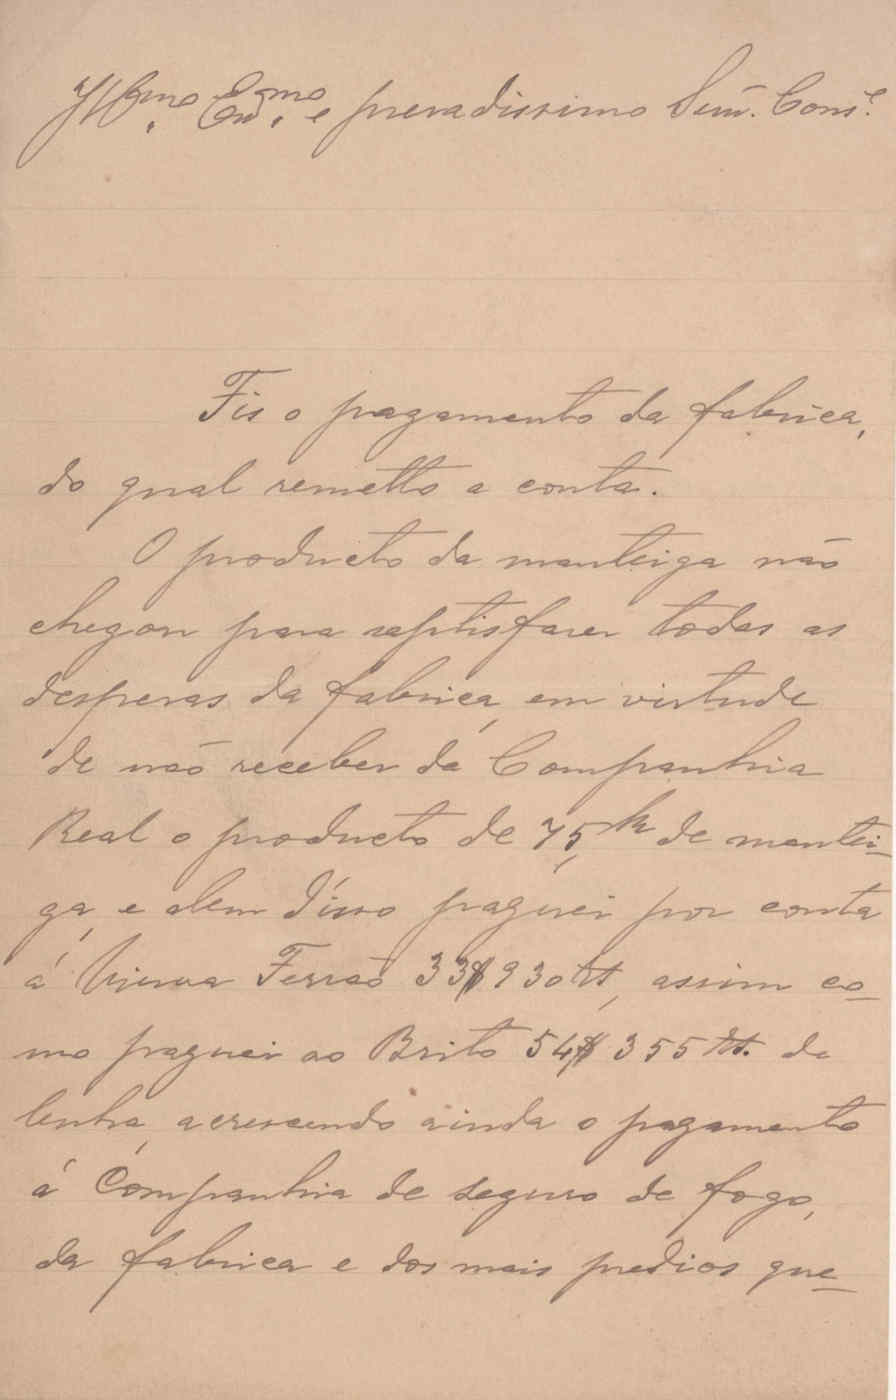 Illmo. Exmo. e presadissimo Senr. Conso.
Fis o pagamento da fabrica,
do qual remetto a conta.
O producto da manteiga não
chegou para saptisfazer todas as
despezas da fabrica, em virtude
de não receber da Companhia
Real o producto de 75,k de mantei-
ga, e alem d'isso paguei por conta
á Viuva Ferrão 33$930 rs, assim co-
mo paguei ao Brito 54$355 rs. de
lenha, acrescendo ainda o pagamento
á Companhia de seguro de fogo,
da fabrica e dos mais predios que-